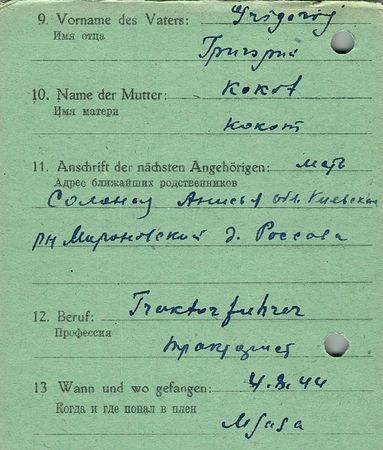 9. Vorname des Vaters: Grigorij
Имя отца Григорий
10. Name der Mutter: Kokot
Имя матери Кокот
11. Anschrift der nächsten Angehörigen: мать
Адрес ближайших родственников
Анисья обл. Киевская
рн Мироновский д. Россава
12. Beruf: Traktorfuhrer
Профессия тракторист
13 Wann und wo gefangen: 4.8.44
Когда и где попал в плен